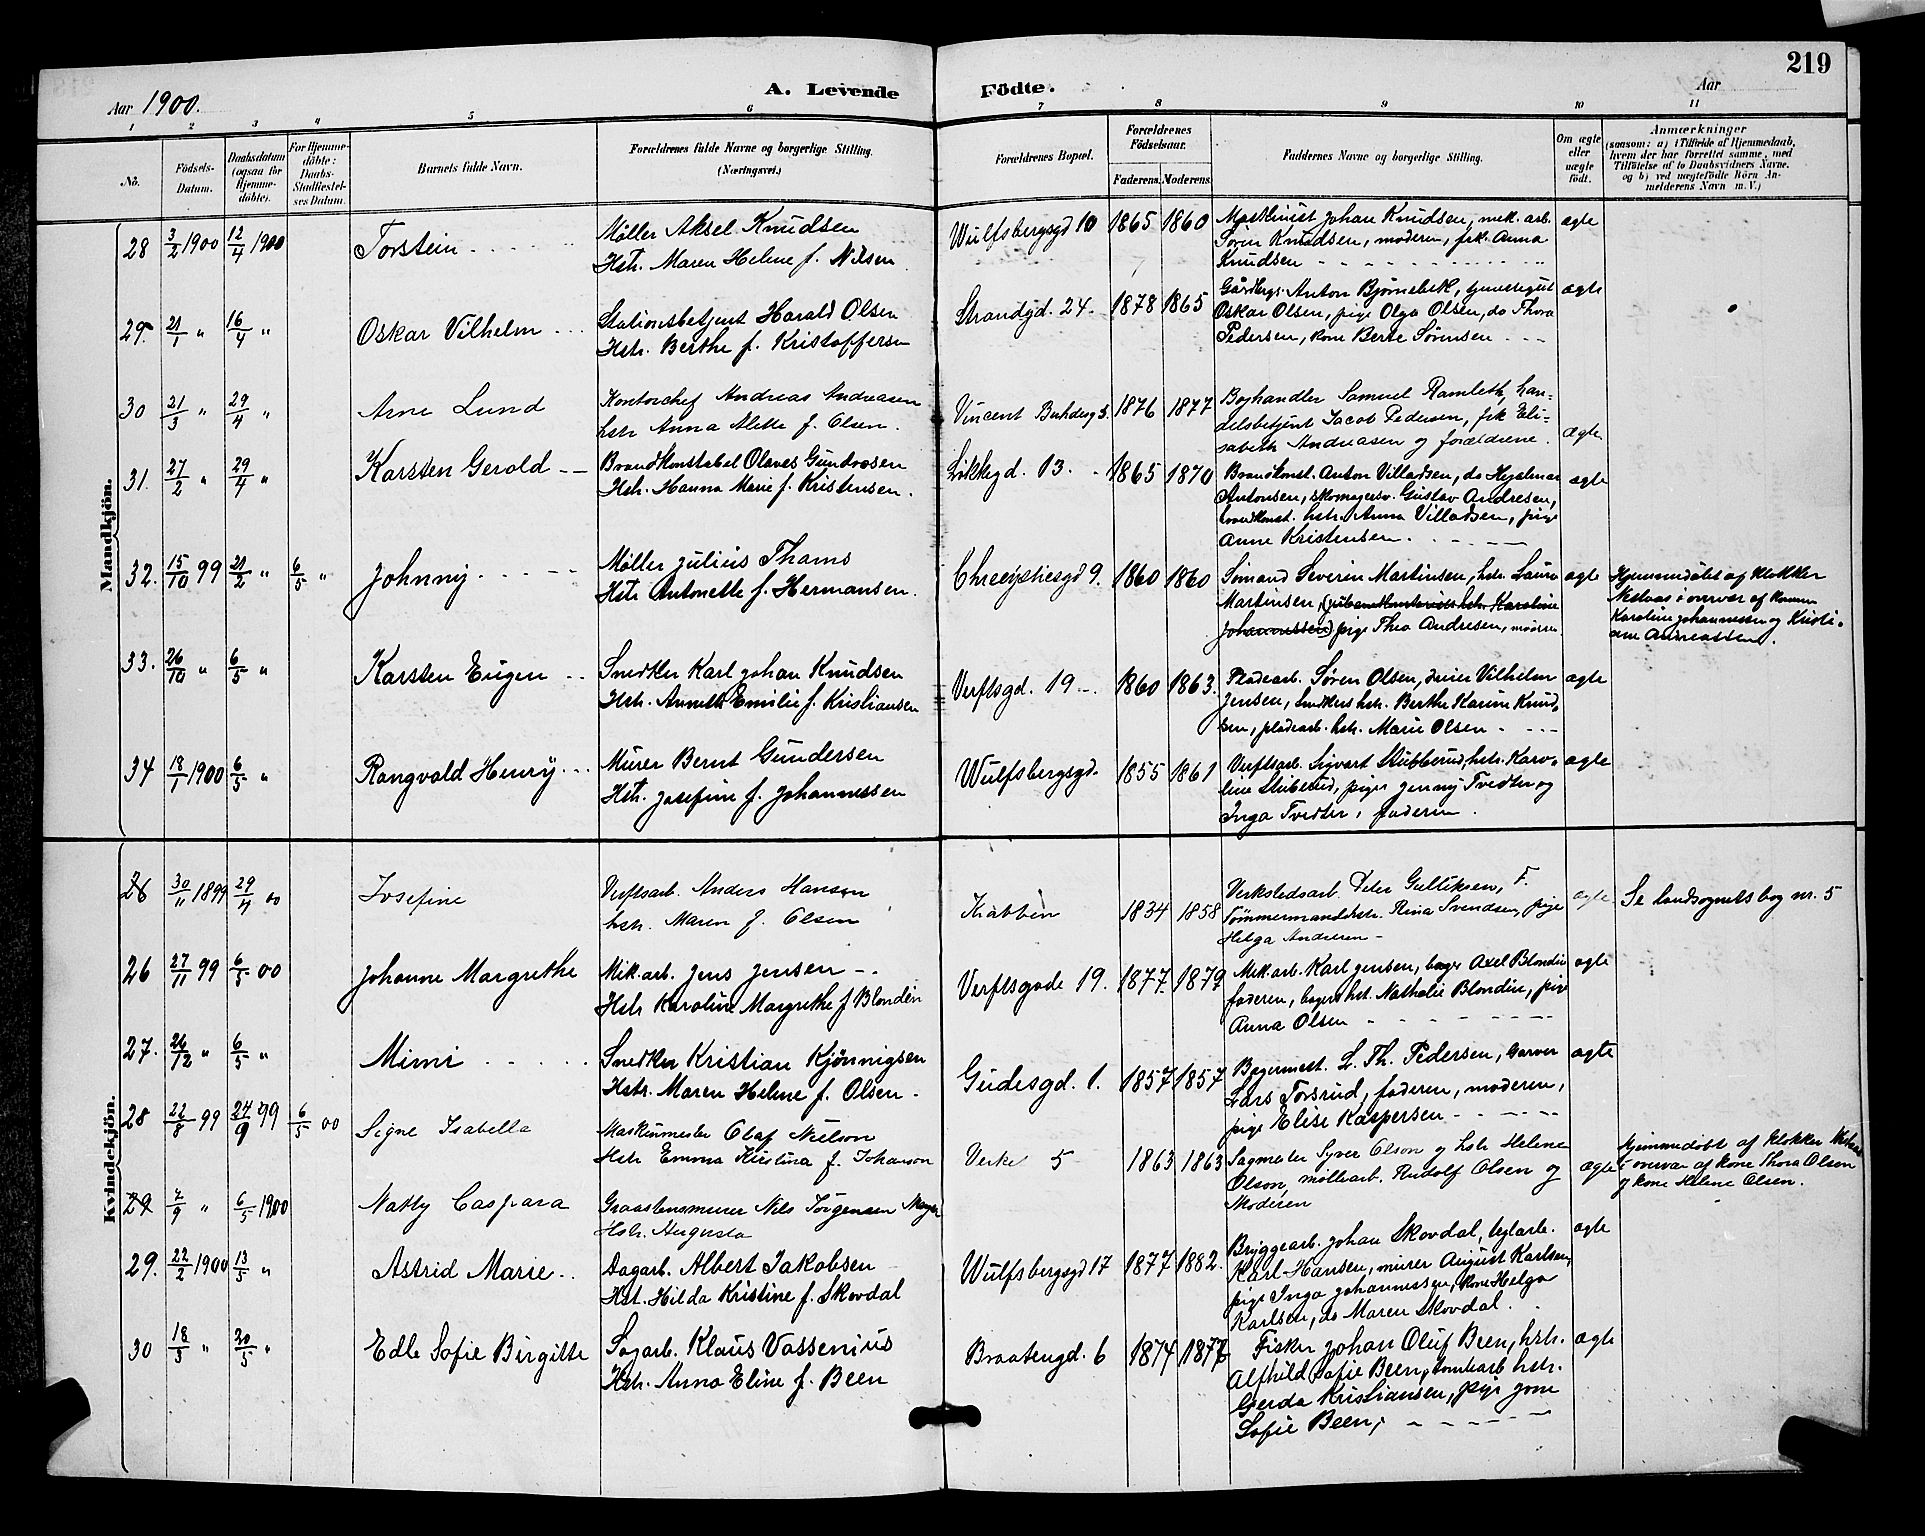 219
Aar 1900.
A. Levende Födte.
Aar
1 2 3 4 5 6 7 8 9 10 11
No.
Födsels-Datum.
Daabsdatum (ogsaa for Hjemmedöbte).
For Hjemmedöbte: Daabs-Stadfæstelses Datum.
Barnets fulde Navn.
Forældrenes fulde Navne og borgerlige Stilling. (Næringsvei.)
Forældrenes Bopæl.
Forældrenes Födselsaar.
Faderens. Moderens.
Faddernes Navne og borgerlige Stilling.
Om ægte eller uægte födt.
Anmærkninger
(saasom: a) i Tilfælde af Hjemmedaab, hvem der har forrettet samme, med Tilföielse af to Daabsvidners Navne. og b) ved uægtefödte Börn Anmelderens Navn m. V.)
Mandkjön.
28 3/2 1900 12/4 1900 Torstein
Møller Aksel Knudsen
Hstr. Maren Helene f. Nilsen
Wulfsbergsgd 10 1865 1860
Maskinist Johan Knudsen, mek. arb.
Søren Knudsen, moderen, frk. Anna
Knudsen
ægte
29. 21/1 " 16/4 " Oskar Vilhelm
Stationsbetjent Harald Olsen
Hstr. Berthe f. Kristoffersen
Strandgd. 24. 1878 1865
Anton Bjørnebek, tjenestegut
Oskar Olsen, pige Olga Olsen, do Thora
Pedersen, kone Berte Sørensen
ægte
30 21/3 " 29/4 " Arne Lund
Kontorchef Andreas Andreasen
hstr Anna Alette f. Olsen.
Vincent Buhdesg 5. 1876 1877
Boghandler Samuel Ramleth, han-
delsbetjent Jacob Pedersen, frk Eli-
sabeth Andreasen og forældrene.
ægte
31. 27/2 " 29/4 " Karsten Gerold
Brandkonstabel Olaves Gundersen
Hstr. Hanna Marie f. Kristensen.
Løkkegd. 13. 1865 1870
Brandkonst. Anton Villadsen, do Hjalmar
Antonsen, skomagersv. Gustav Andresen,
brandkonst. hstr. Anna Villadsen, pige
Anne Kristensen.
ægte
32. 15/10 99 21/2 " 6/5 " Johnny
Møller Julius Thams
Hstr Antonette f. Hermansen.
9. 1860 1860
Sømand Severin Martinsen, hstr. Laura
Martinsen, Karoline
Johannessen) pige Thea Andresen, moderen
ægte
Hjemmedøbt af klokker
Neslaas i overvær af konerne
Karoline Johannessen og Kristi-
ane Andreassen.
33. 26/10 " 6/5 " Karsten Eugen
Snedker Karl Johan Knudsen
Hstr. Annette Emilie f. Kristiansen
Verftsgd. 19 1860 1863.
Pladearb. Søren Olsen, Vilhelm
Jensen, snedkers hstr. Berthe Karine Knud-
sen, pladearb. hstr. Marie Olsen
ægte
34 18/1 1900 6/5 " Rangvald Henry
Murer Bernt Gundersen
Hstr. Josefine f. Johannessen
Wulfsbergsgd. 1855 1861
Verftsarb. Sigvart Stubberud, hstr. Karo-
line Stuberud, piger Jenny Tvedter og
Inga Tvedter, faderen.
ægte
Kvindekjön.
26 30/11 1899 29/4 00 Josefine
Verftsarb. Anders Hansen
hstr. Maren f. Olsen
Krabben 1834 1858
Verkstedsarb. Peter Gulliksen, F.
Tømmermandshstr. Rina Svendsen, pige
Helga Andresen
ægte
Se landsognets bog nr. 5
26 27/11 99 6/5 00 Johanne Margrethe
Mek. arb. Jens Jensen
Hstr Karoline Margrethe f Blondin
Verftsgade 19. 1877. 1879
Mek. arb. Karl Jensen, bager Axel Blondin
faderen, bagers hst. Nathalie Blondin, pige
Anna Olsen
ægte
27. 26/12 " 6/5 " Mimi
Snedker Kristian Kjønnigsen
Hstr. Maren Helene f. Olsen
Gudesgd. 1. 1857 1857
Bagermest. L. Th. Pedersen, Garver
Lars Torsrud, faderen, moderen,
pige Elise Kaspersen
ægte
28 22/8 99 24/9 99 6/5 00 Signe Isabella
Maskinmester Olaf Nielson
Hstr Emma Kristina f. Johanson
Verket 5 1863 1863
Sagmester Syver Olson og hstr Helene
Olson, møllearb. Rudolf Olsen og
Moderen
ægte
Hjemmedøbt af klokker
i overvær af kone Thora Olsen
og kone Helene Olsen.
29 7/9 " 6/5 1900 Natty Caspara
Graastensmurer Nils Jørgensen
Hstr. Augusta
29. 22/2 1900 13/5 " Astrid Marie
Dagarb. Albert Jakobsen
Hst. Hilda Kristine f. Skovdal
Wulfsbergsgd 17 1877 1882.
Bryggearb. Johan Skovdal, teglarb.
Karl Hansen, murer August Karlsen,
pige Inga Johannessen, kone Helga
Karlsen, do Maren Skovdal.
ægte
30 18/3 " 20/5 " Edle Sofie Birgitte
Sagarb. Klaus Vassenius
Hstr. Anna Eline f. Been
Braatengd. 6 1874 1877
Fisker Johan Oluf Been, hstr.
Alfhild Sofie Been, hstr.
Gerda Kristiansen, pige
Sofie Been,
ægte